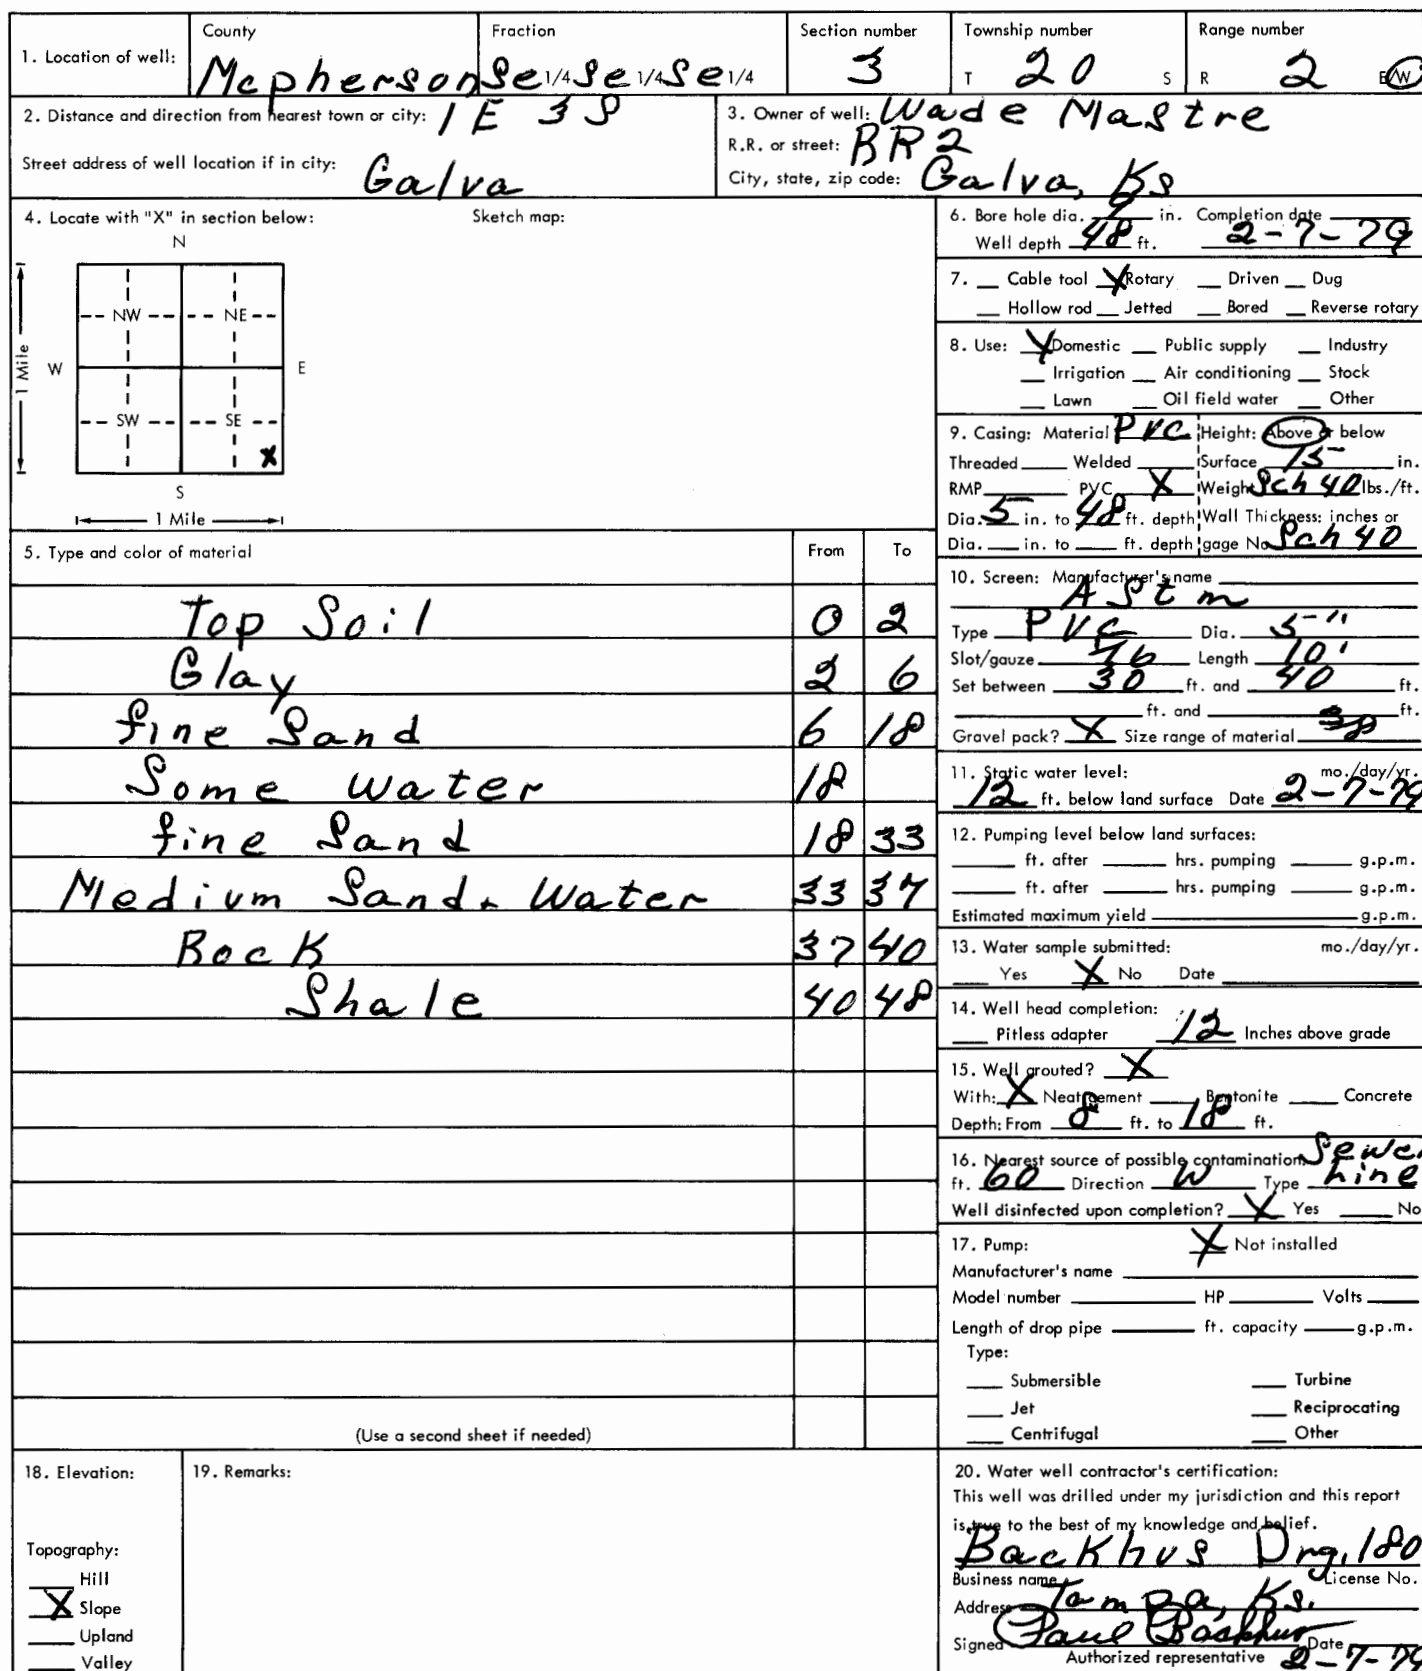 County Fraction Section number Township number Range number
1. Location of well: Mcpherson Se 1/4 Se 1/4 Se 1/4 3 T 20 S R 2 E/W
2. Distance and direction from nearest town or city: 1 E 3 S
Street address of well location if in city: Galva
3. Owner of well: Wade Mastre
R.R. or street: RR2
City, state, zip code: Galva, Ks
4. Locate with "X" in section below: Sketch map:
N
NW NE
W E
1 Mile
SW SE
X
S
1 Mile
5. Type and color of material From To
Top Soil 0 2
Clay 2 6
fine Sand 6 18
Some water 18
fine Sand 18 33
Medium Sand & Water 33 37
Rock 37 40
Shale 40 48
(Use a second sheet if needed)
6. Bore hole dia. in. Completion date
Well depth 48 ft. 2-7-79
7. Cable tool X Rotary Driven Dug
Hollow rod Jetted Bored Reverse rotary
8. Use: X Domestic Public supply Industry
Irrigation Air conditioning Stock
Lawn Oil field water Other
9. Casing: Material PVC Height: Above or below
Threaded Welded Surface 15 in.
RMP PVC X Weight Sch 40 lbs./ft.
Dia. 5 in. to 48 ft. depth Wall Thickness: inches or
Dia. in. to ft. depth gage No Sch 40
10. Screen: Manufacturer's name
AStm
Type PVC Dia. 5"
Slot/gauze Length 10'
Set between 30 ft. and 40 ft.
ft. and ft.
Gravel pack? X Size range of material
11. Static water level: mo./day/yr.
12 ft. below land surface Date 2-7-79
12. Pumping level below land surfaces:
ft. after hrs. pumping g.p.m.
ft. after hrs. pumping g.p.m.
Estimated maximum yield g.p.m.
13. Water sample submitted: mo./day/yr.
Yes X No Date
14. Well head completion:
Pitless adapter 12 Inches above grade
15. Well grouted? X
With: X Neat cement Bentonite Concrete
Depth: From 8 ft. to 18 ft.
16. Nearest source of possible contamination: Sewer
ft. 60 Direction W Type Line
Well disinfected upon completion? X Yes No
17. Pump: X Not installed
Manufacturer's name
Model number HP Volts
Length of drop pipe ft. capacity g.p.m.
Type:
Submersible Turbine
Jet Reciprocating
Centrifugal Other
18. Elevation:
Topography:
Hill
X Slope
Upland
Valley
19. Remarks:
20. Water well contractor's certification:
This well was drilled under my jurisdiction and this report
is true to the best of my knowledge and belief.
Backhus Drg. 180
Business name License No.
Address Tampa, Ks.
Signed Paul Backhus Date
Authorized representative 2-7-79